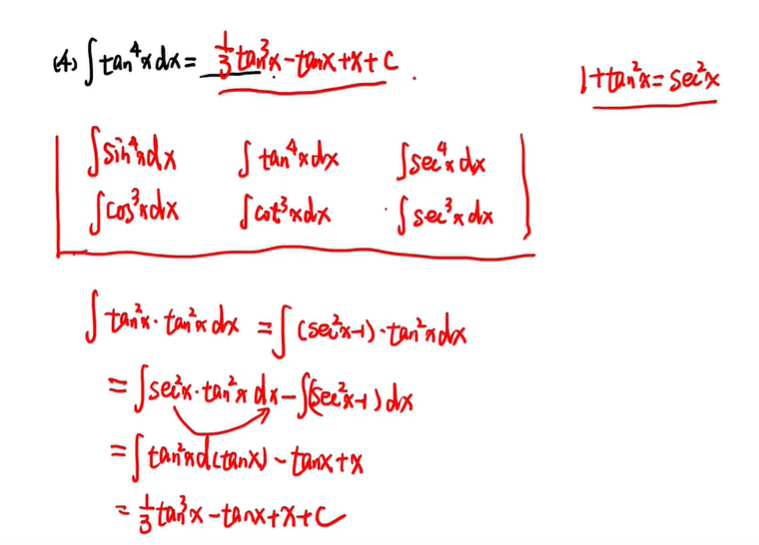 (4) ∫tan⁴xdx = 1/3 tan³x - tanx + x + C .
1+tan²x = sec²x
∫sin⁴xdx ∫tan⁴xdx ∫sec⁴xdx
∫cos³xdx ∫cot³xdx ∫sec³xdx
∫tan²x·tan²xdx = ∫(sec²x-1)·tan²xdx
= ∫sec²x·tan²xdx - ∫(sec²x-1)dx
= ∫tan²xd(tanx) - tanx + x
= 1/3 tan³x - tanx + x + C